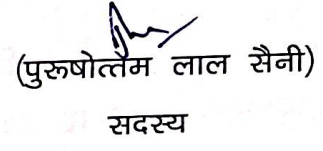 (पुरूषोत्तम लाल सैनी)
सदस्य